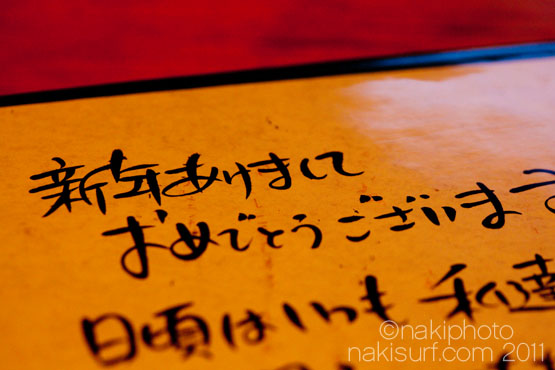 新年あけまして
おめでとうございます
日頃はいつも私達
©nakiphoto
nakisurf.com 2011